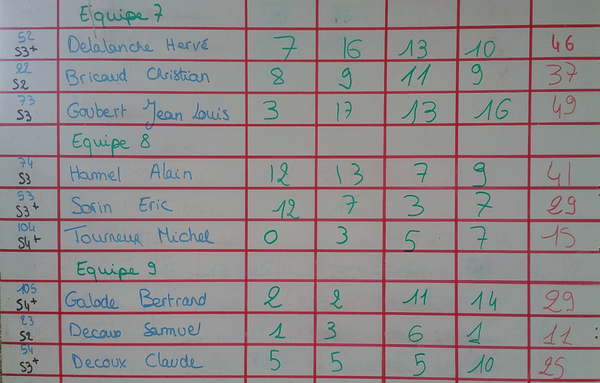 Equipe 7
52 S3+ Delalanche Hervé 7 16 13 10 46
22 S2 Bricaud Christian 8 9 11 9 37
73 S3 Goubert Jean Louis 3 17 13 16 49
Equipe 8
74 S3 Hamel Alain 12 13 7 9 41
53 S3+ Sorin Eric 12 7 3 7 29
104 S4+ Tourneux Michel 0 3 5 7 15
Equipe 9
105 S4+ Galode Bertrand 2 2 11 14 29
23 S2 Decoux Samuel 1 3 6 1 11
54 S3+ Decoux Claude 5 5 5 10 25